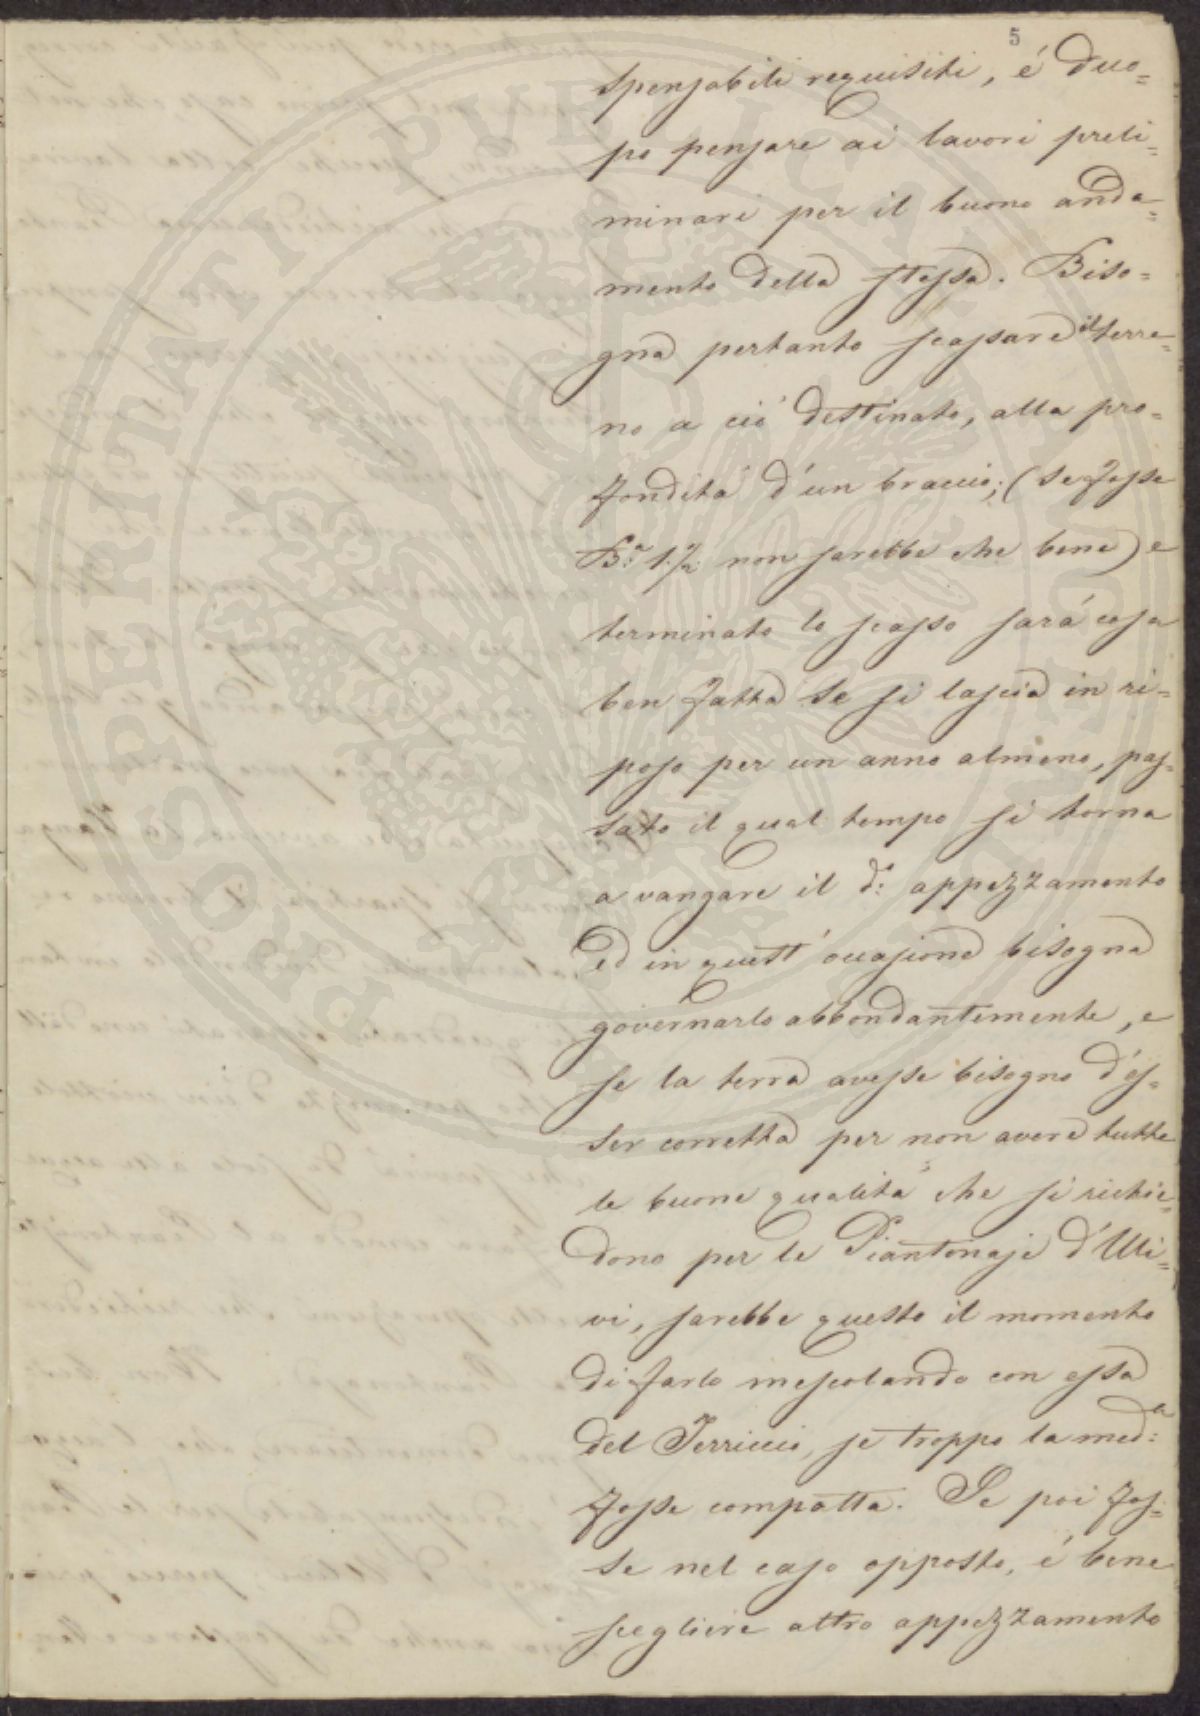 5
spensabili requisiti, é duo=
po pensare ai lavori preli=
minari per il buono anda=
mento della stessa. Biso=
gna pertanto scassare il terre=
no a ciò destinato, alla pro=
fondità d'un braccio; (se fosse
B.ª 1.½ non sarebbe che bene) e
terminato lo scasso sará cosa
ben fatta se si lascia in ri=
poso per un anno almeno, pas=
sato il qual tempo si torna
a vangare il d.º appezzamento
ed in quest'occasione bisogna
governarlo abbondantemente, e
se la terra avesse bisogno d'es=
ser corretta per non avere tutte
le buone qualità che si richie=
dono per le Piantonaje d'Uli=
vi, sarebbe questo il momento
di farlo mescolando con essa
del Terriccio, se troppo la med.ª
fosse compatta. Se poi fos=
se nel caso opposto, é bene
scegliere altro appezzamento
PROSPERITATI PUBLICAE